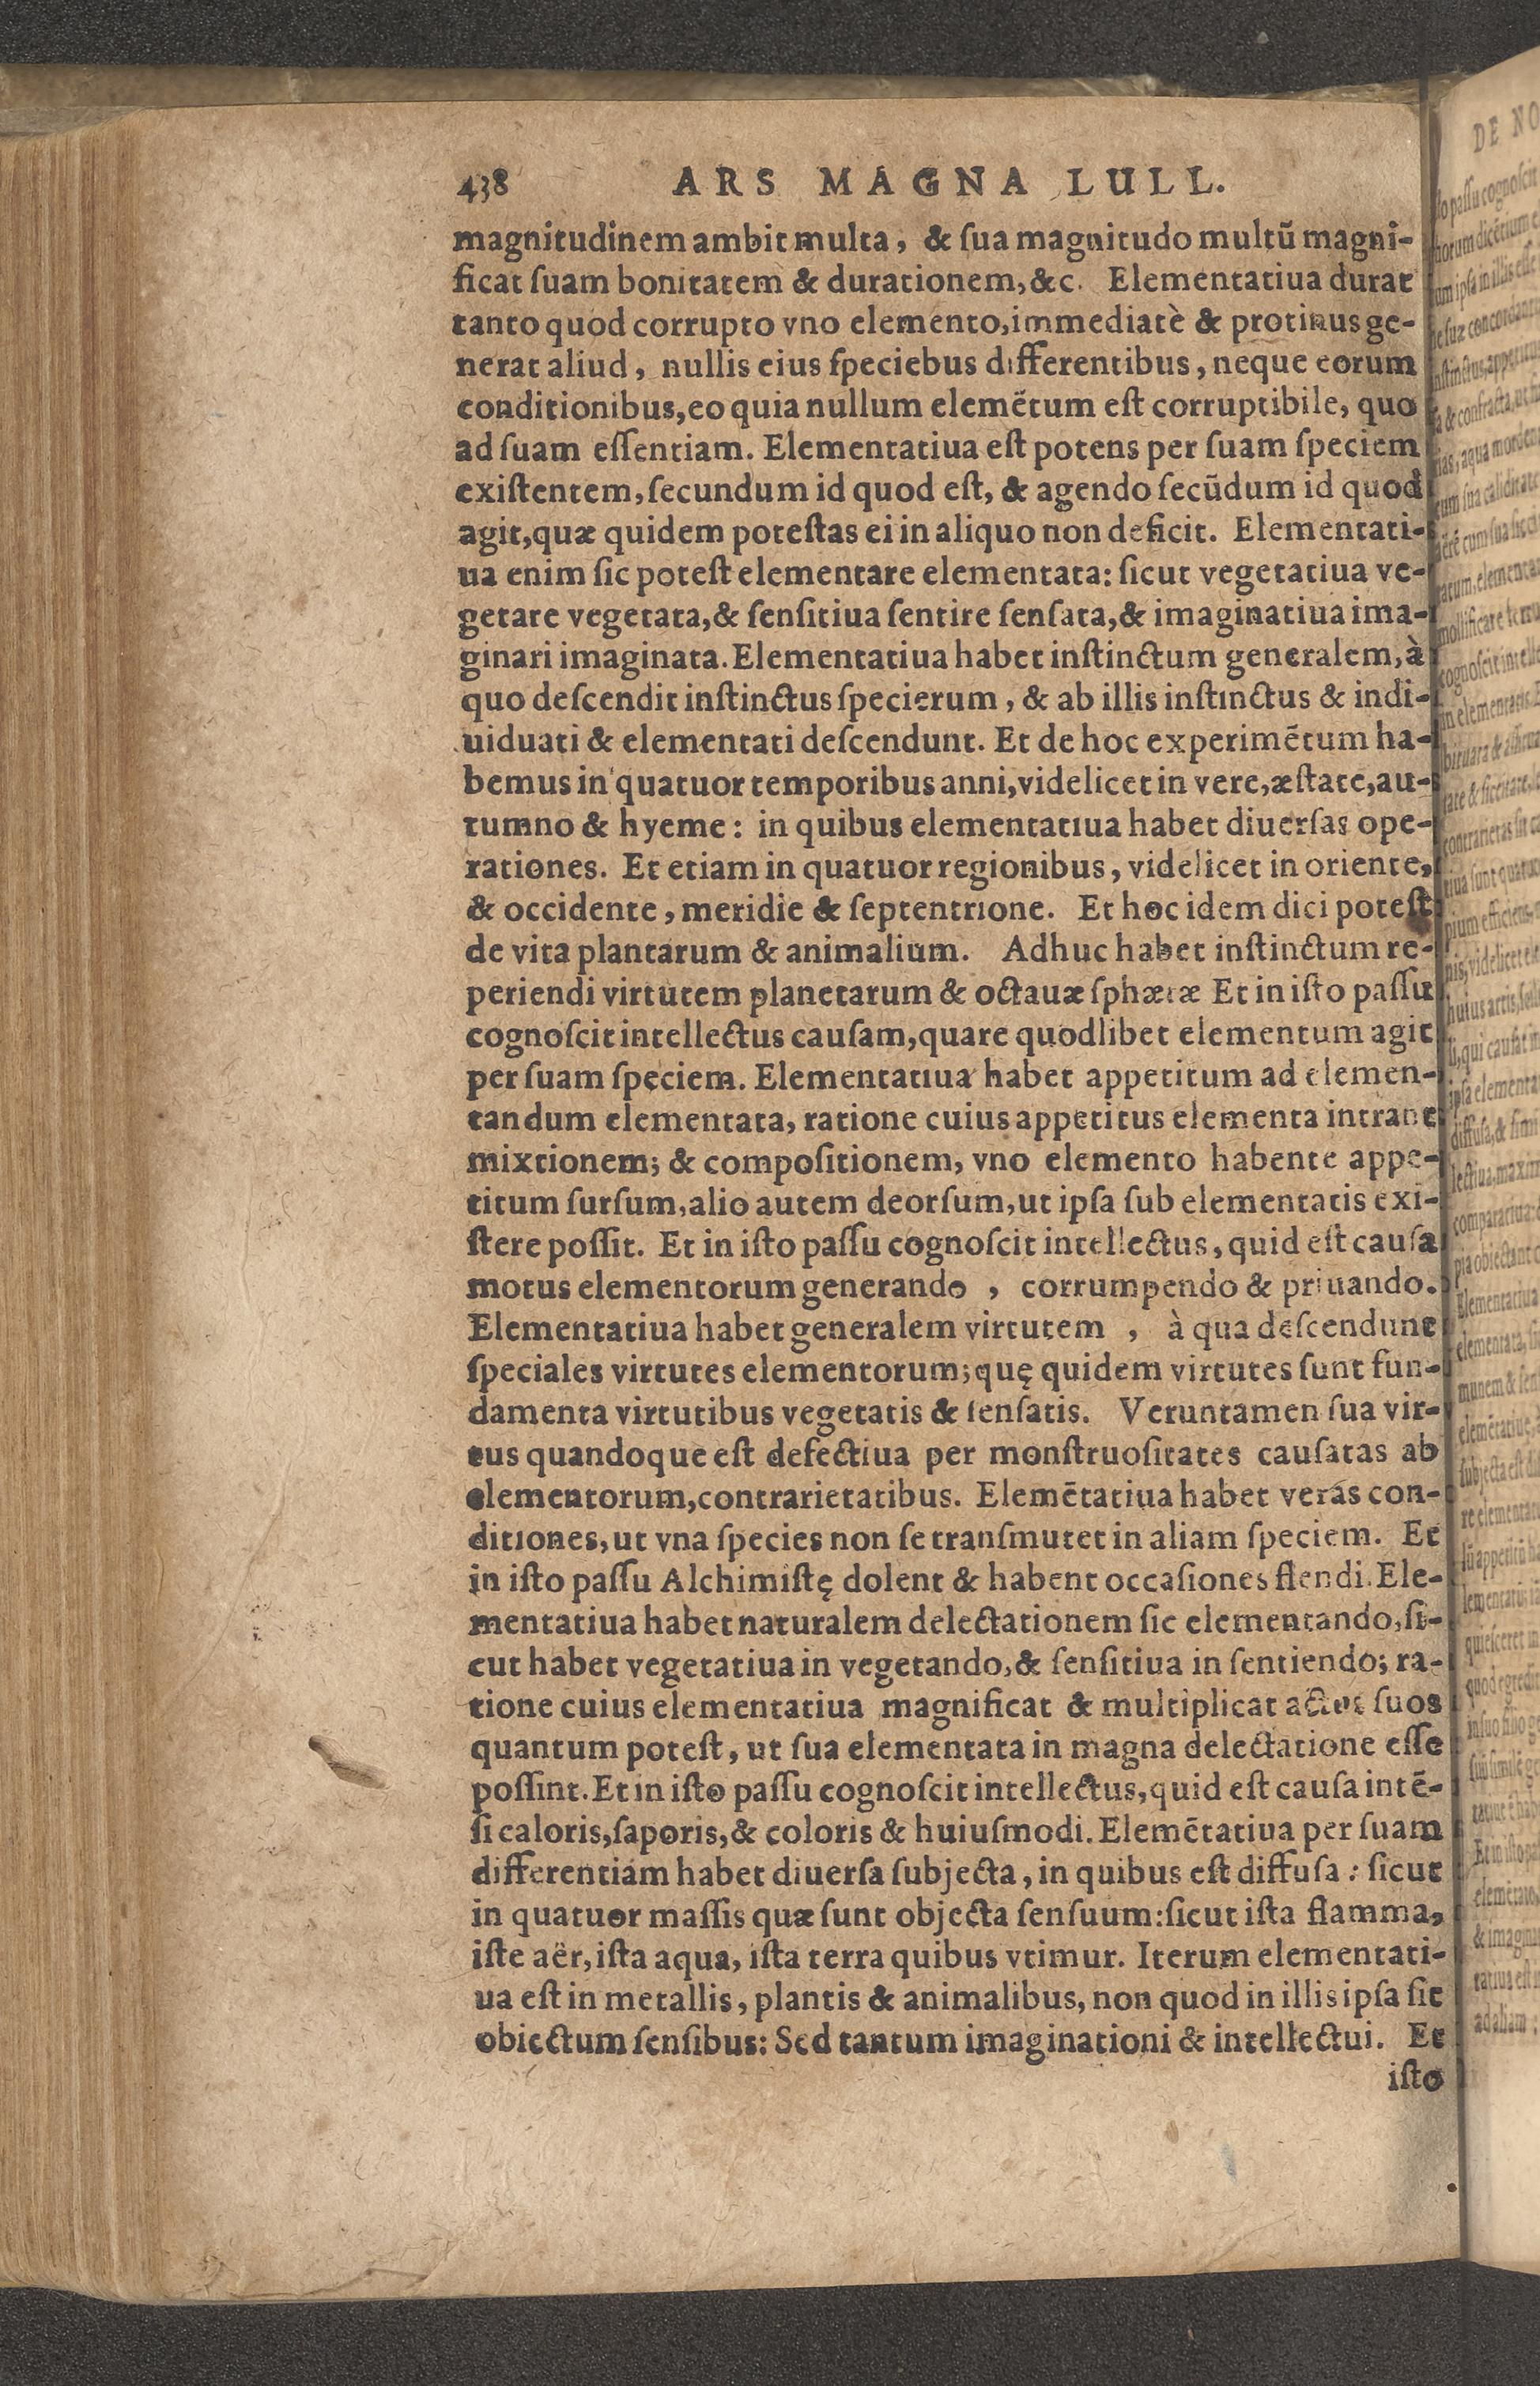 438 ARS MAGNA LULL.
magnitudinem ambit multa, & ſua magnitudo multũ magni-
ficat ſuam bonitatem & durationem, &c. Elementatiua durat
tanto quod corrupto vno elemento, immediatè & protinus ge-
nerat aliud, nullis eius ſpeciebus differentibus, neque eorum
conditionibus, eo quia nullum elemẽtum eſt corruptibile, quo
ad ſuam eſſentiam. Elementatiua eſt potens per ſuam ſpeciem
exiſtentem, ſecundum id quod eſt, & agendo ſecũdum id quod
agit, quæ quidem poteſtas ei in aliquo non deficit. Elementati-
ua enim ſic poteſt elementare elementata: ſicut vegetatiua ve-
getare vegetata, & ſenſitiua ſentire ſenſata, & imaginatiua ima-
ginari imaginata. Elementatiua habet inſtinctum generalem, à
quo deſcendit inſtinctus ſpecierum, & ab illis inſtinctus & indi-
uiduati & elementati deſcendunt. Et de hoc experimẽtum ha-
bemus in quatuor temporibus anni, videlicet in vere, æſtate, au-
tumno & hyeme: in quibus elementatiua habet diuerſas ope-
rationes. Et etiam in quatuor regionibus, videlicet in oriente,
& occidente, meridie & ſeptentrione. Et hoc idem dici poteſt
de vita plantarum & animalium. Adhuc habet inſtinctum re-
periendi virtutem planetarum & octauæ ſphæræ Et in iſto paſſu
cognoſcit intellectus cauſam, quare quodlibet elementum agit
per ſuam ſpeciem. Elementatiua habet appetitum ad elemen-
tandum elementata, ratione cuius appetitus elementa intrant
mixtionem; & compoſitionem, vno elemento habente appe-
titum ſurſum, alio autem deorſum, ut ipſa ſub elementatis exi-
ſtere poſſit. Et in iſto paſſu cognoſcit intellectus, quid eſt cauſa
motus elementorum generando, corrumpendo & priuando.
Elementatiua habet generalem virtutem, à qua deſcendunt
ſpeciales virtutes elementorum; quę quidem virtutes ſunt fun-
damenta virtutibus vegetatis & ſenſatis. Veruntamen ſua vir-
tus quandoque eſt defectiua per monſtruoſitates cauſatas ab
elementorum, contrarietatibus. Elemẽtatiua habet veras con-
ditiones, ut vna ſpecies non ſe tranſmutet in aliam ſpeciem. Et
in iſto paſſu Alchimiſtę dolent & habent occaſiones flendi. Ele-
mentatiua habet naturalem delectationem ſic elementando, ſi-
cut habet vegetatiua in vegetando, & ſenſitiua in ſentiendo; ra-
tione cuius elementatiua magnificat & multiplicat actus ſuos
quantum poteſt, ut ſua elementata in magna delectatione eſſe
poſſint. Et in iſto paſſu cognoſcit intellectus, quid eſt cauſa intẽ-
ſi caloris, ſaporis, & coloris & huiuſmodi. Elemẽtatiua per ſuam
differentiam habet diuerſa ſubjecta, in quibus eſt diffuſa: ſicut
in quatuor maſſis quæ ſunt objecta ſenſuum: ſicut iſta flamma,
iſte aër, iſta aqua, iſta terra quibus vtimur. Iterum elementati-
ua eſt in metallis, plantis & animalibus, non quod in illis ipſa ſit
obiectum ſenſibus: Sed tantum imaginationi & intellectui. Et
iſto
DE NO